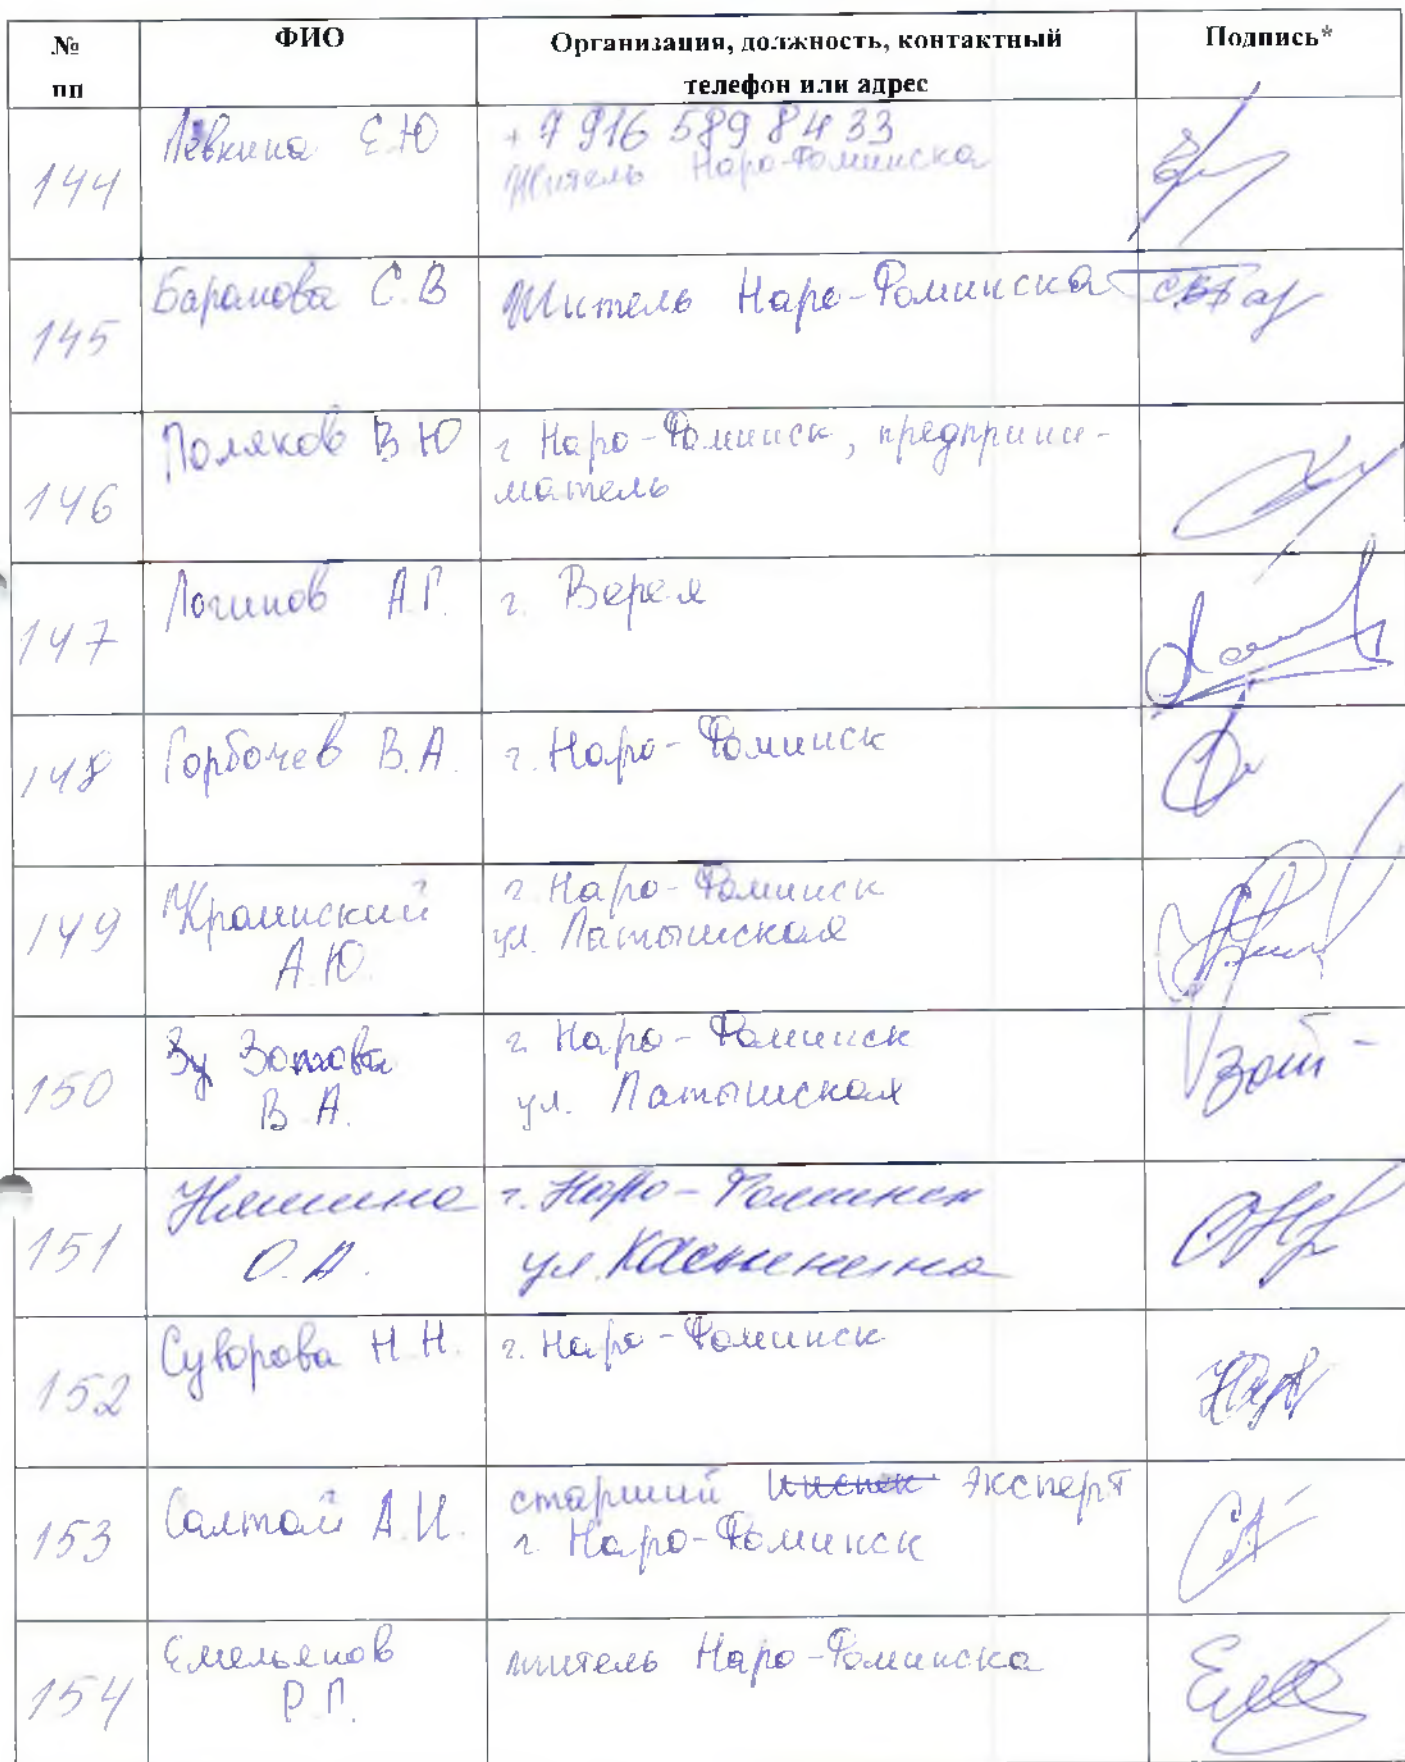 № пп ФИО Организация, должность, контактный телефон или адрес Подпись*
144 Левкина Е.Ю +7 916 589 84 33
Житель Наро-Фоминска
145 Баранова С.В Житель Наро-Фоминска
146 Поляков В Ю г Наро-Фоминск, предприни-
матель
147 Логинов А.Г. г. Верея
148 Горбачев В.А. г. Наро-Фоминск
149 Краинский г. Наро-Фоминск
А.Ю. ул. Латышская
150 Зу Зотова г. Наро-Фоминск
В.А. ул. Латышская
151 г. Наро-Фоминск
О.А. ул.
152 Суворова Н.Н. г. Наро-Фоминск
153 Салтай А.И. старший эксперт
г. Наро-Фоминск
154 Емельянов житель Наро-Фоминска
Р.Г.